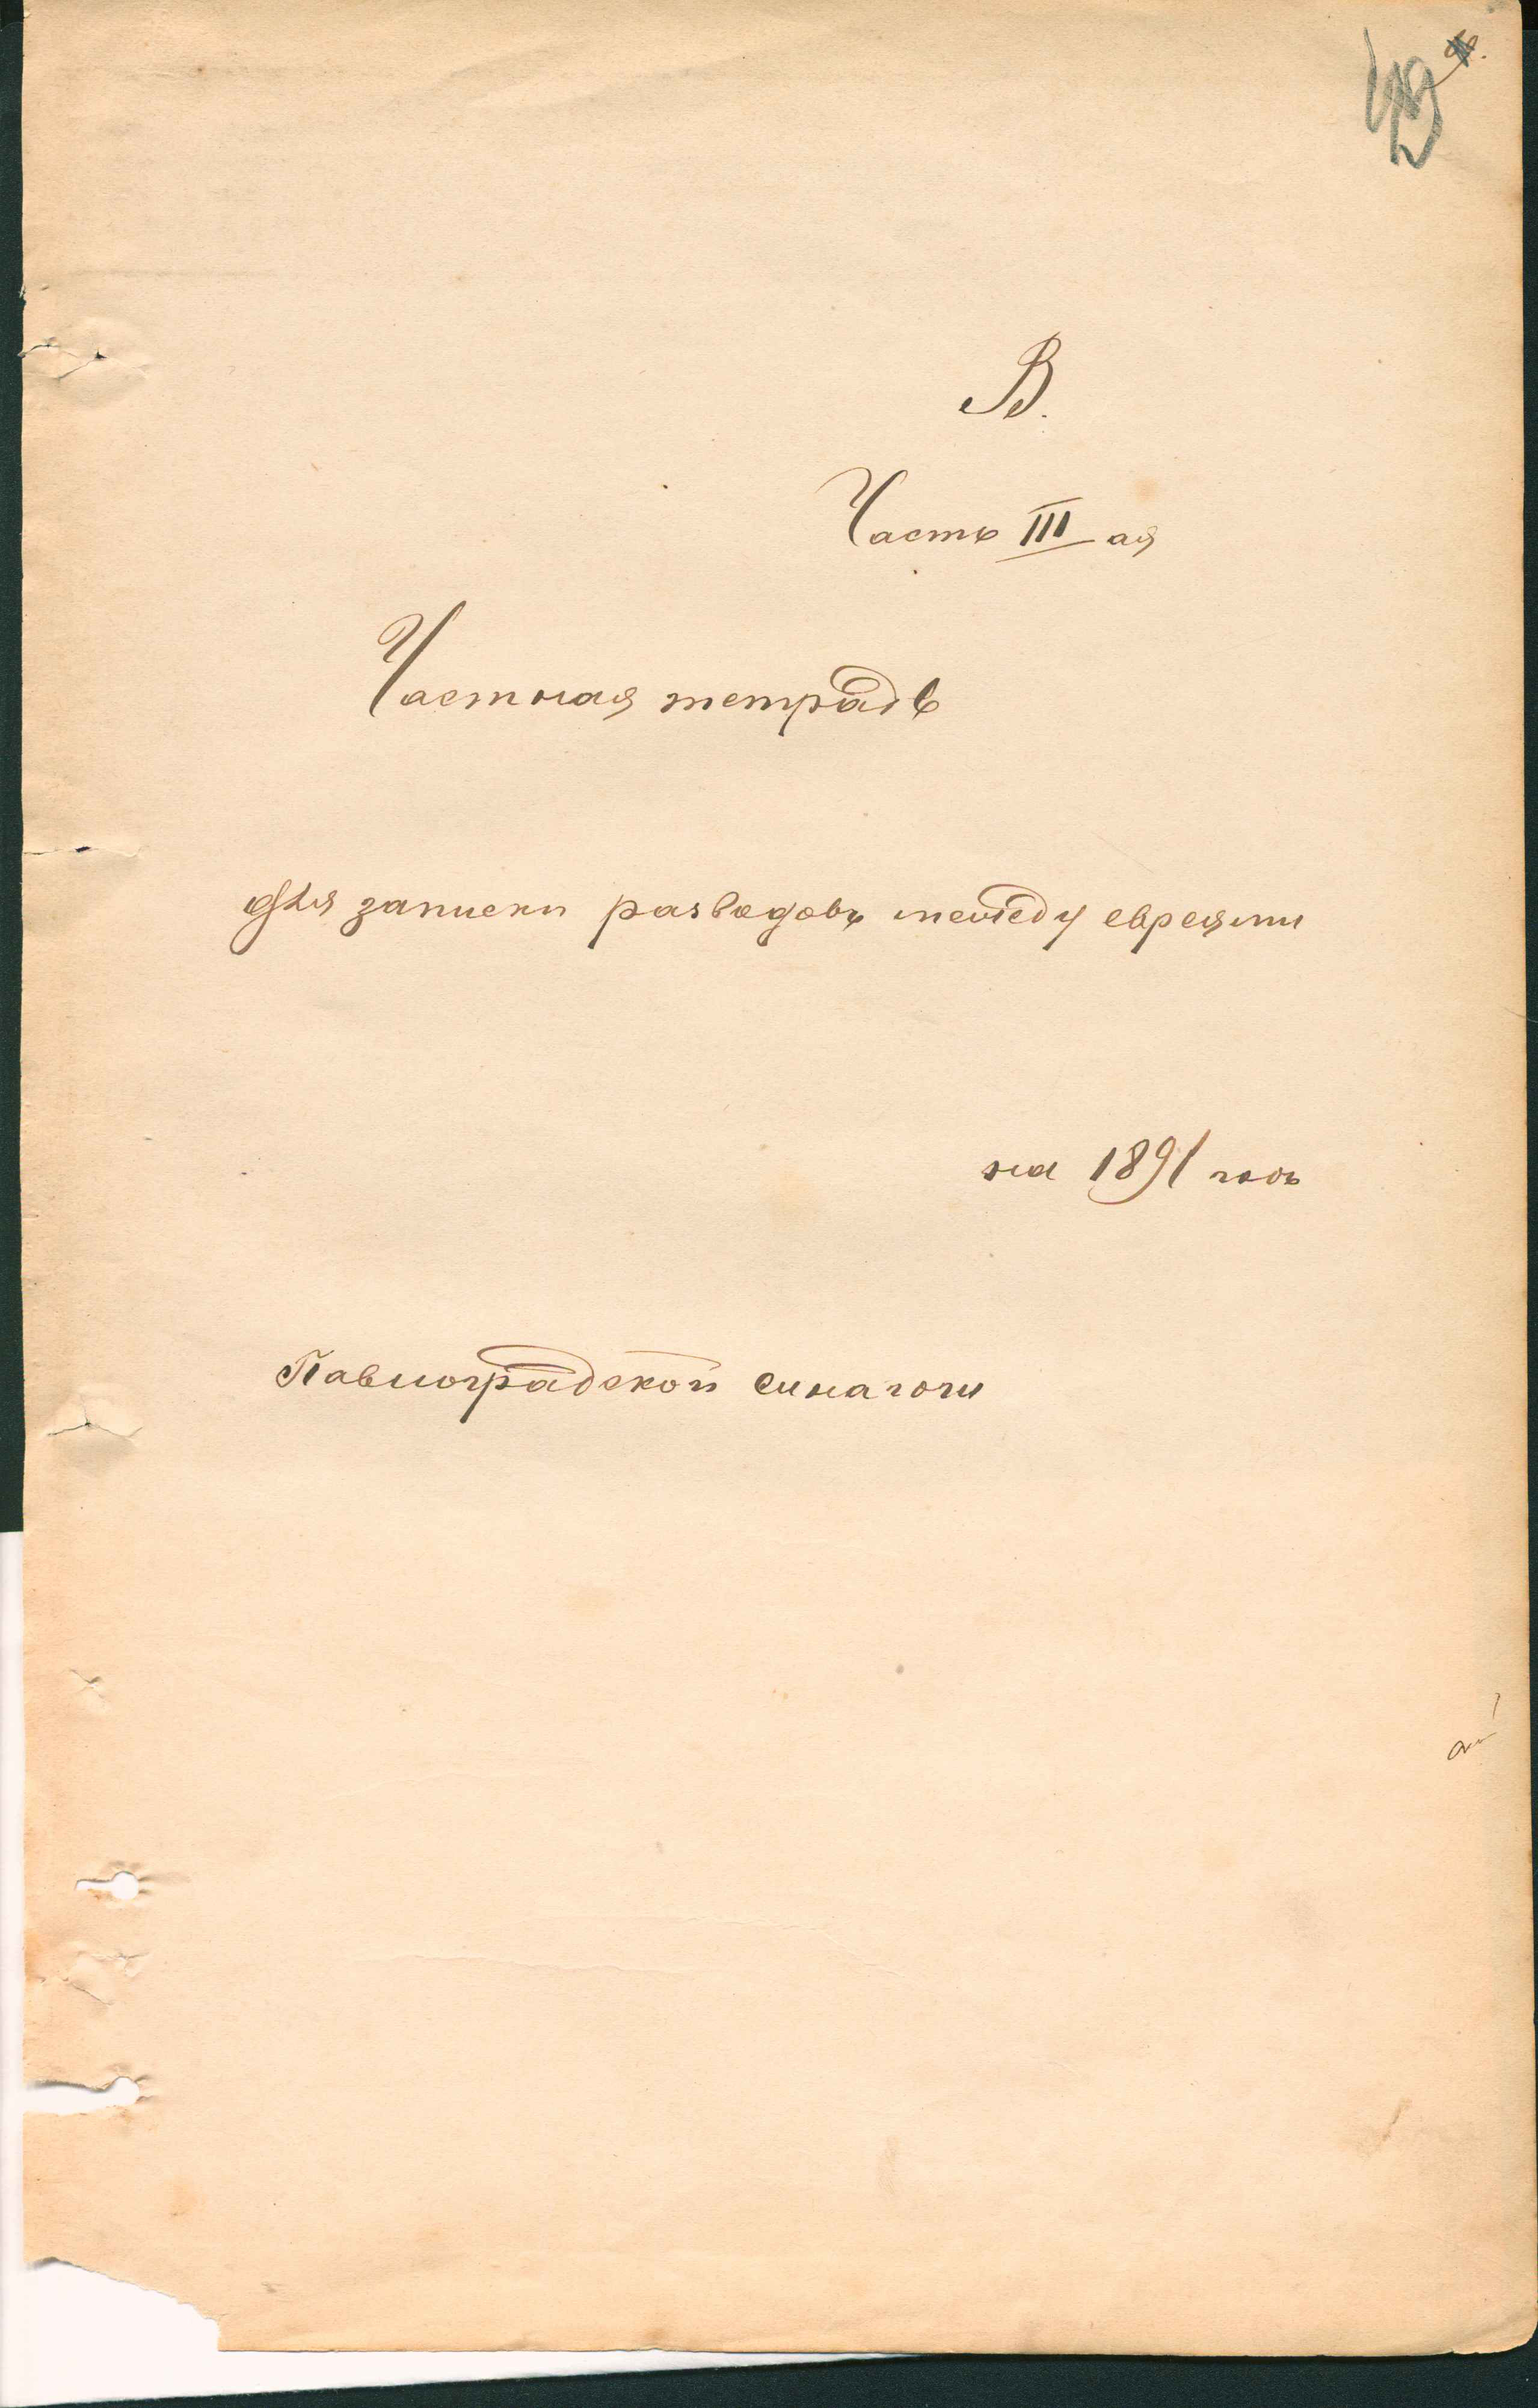 В.
Часть III ая
Частная тетрадь
для записки разводовъ между евреями
на 1891 годъ
Павлоградской синагоги